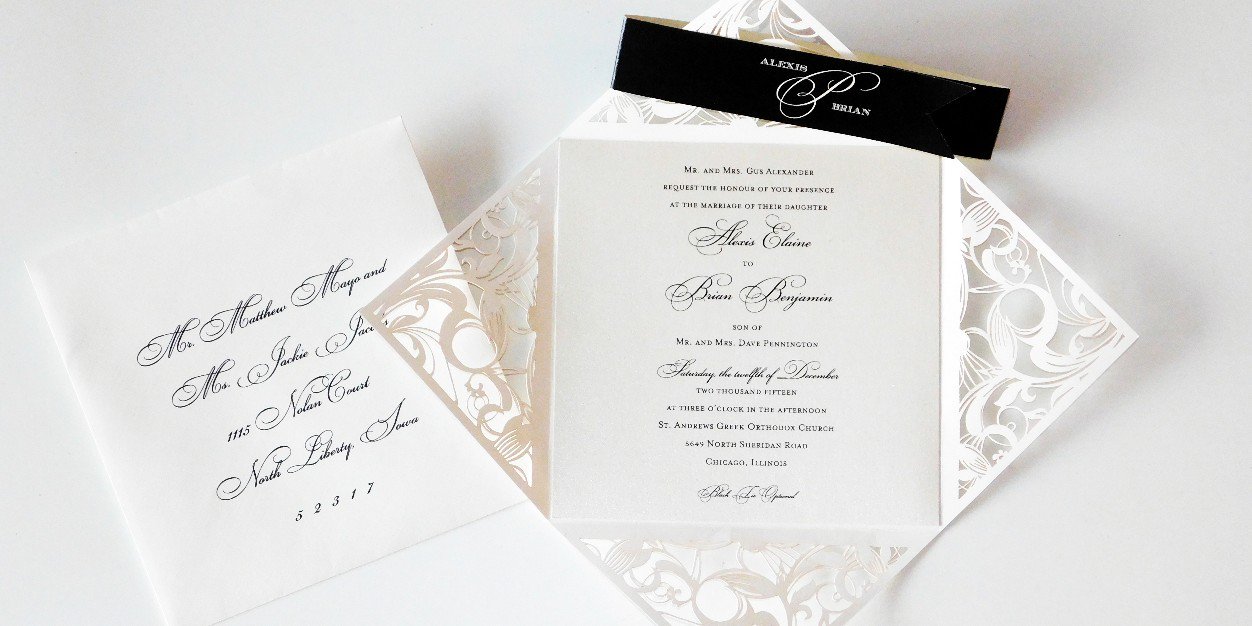 Mr. Matthew Mayo and
Ms. Jackie Jacobs
1115 Nolan Court
North Liberty, Iowa
52317
ALEXIS
P
BRIAN
MR. AND MRS. GUS ALEXANDER
REQUEST THE HONOUR OF YOUR PRESENCE
AT THE MARRIAGE OF THEIR DAUGHTER
Alexis Elaine
TO
Brian Benjamin
SON OF
MR. AND MRS. DAVE PENNINGTON
Saturday, the twelfth of December
TWO THOUSAND FIFTEEN
AT THREE O'CLOCK IN THE AFTERNOON
ST. ANDREWS GREEK ORTHODOX CHURCH
6649 NORTH SHERIDAN ROAD
CHICAGO, ILLINOIS
Black Tie Optional